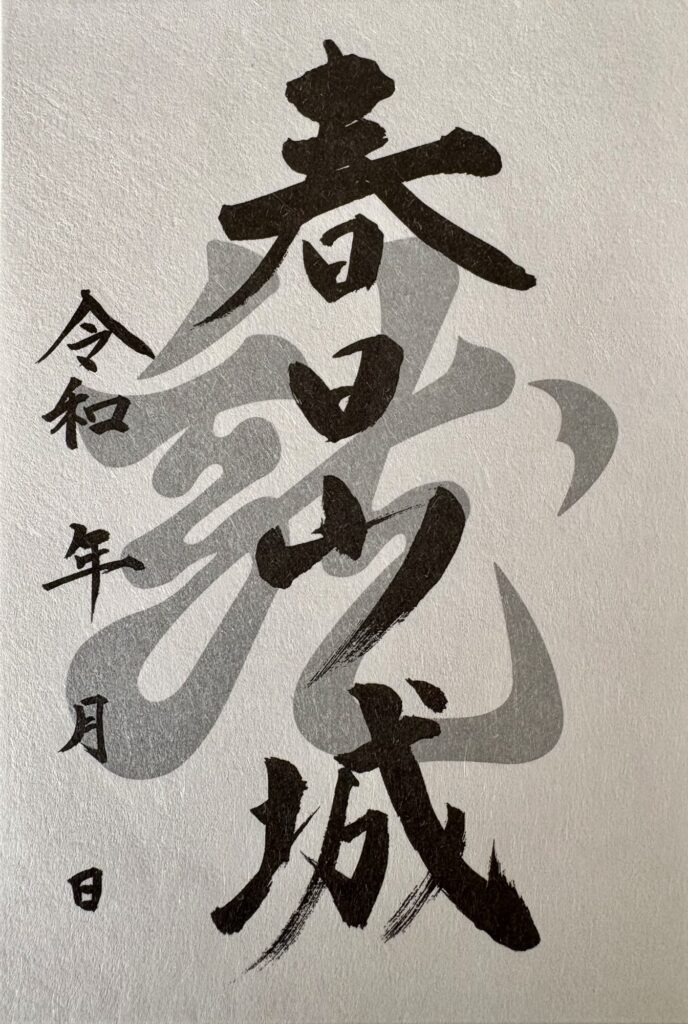 龍
春日山城
令和 年 月 日